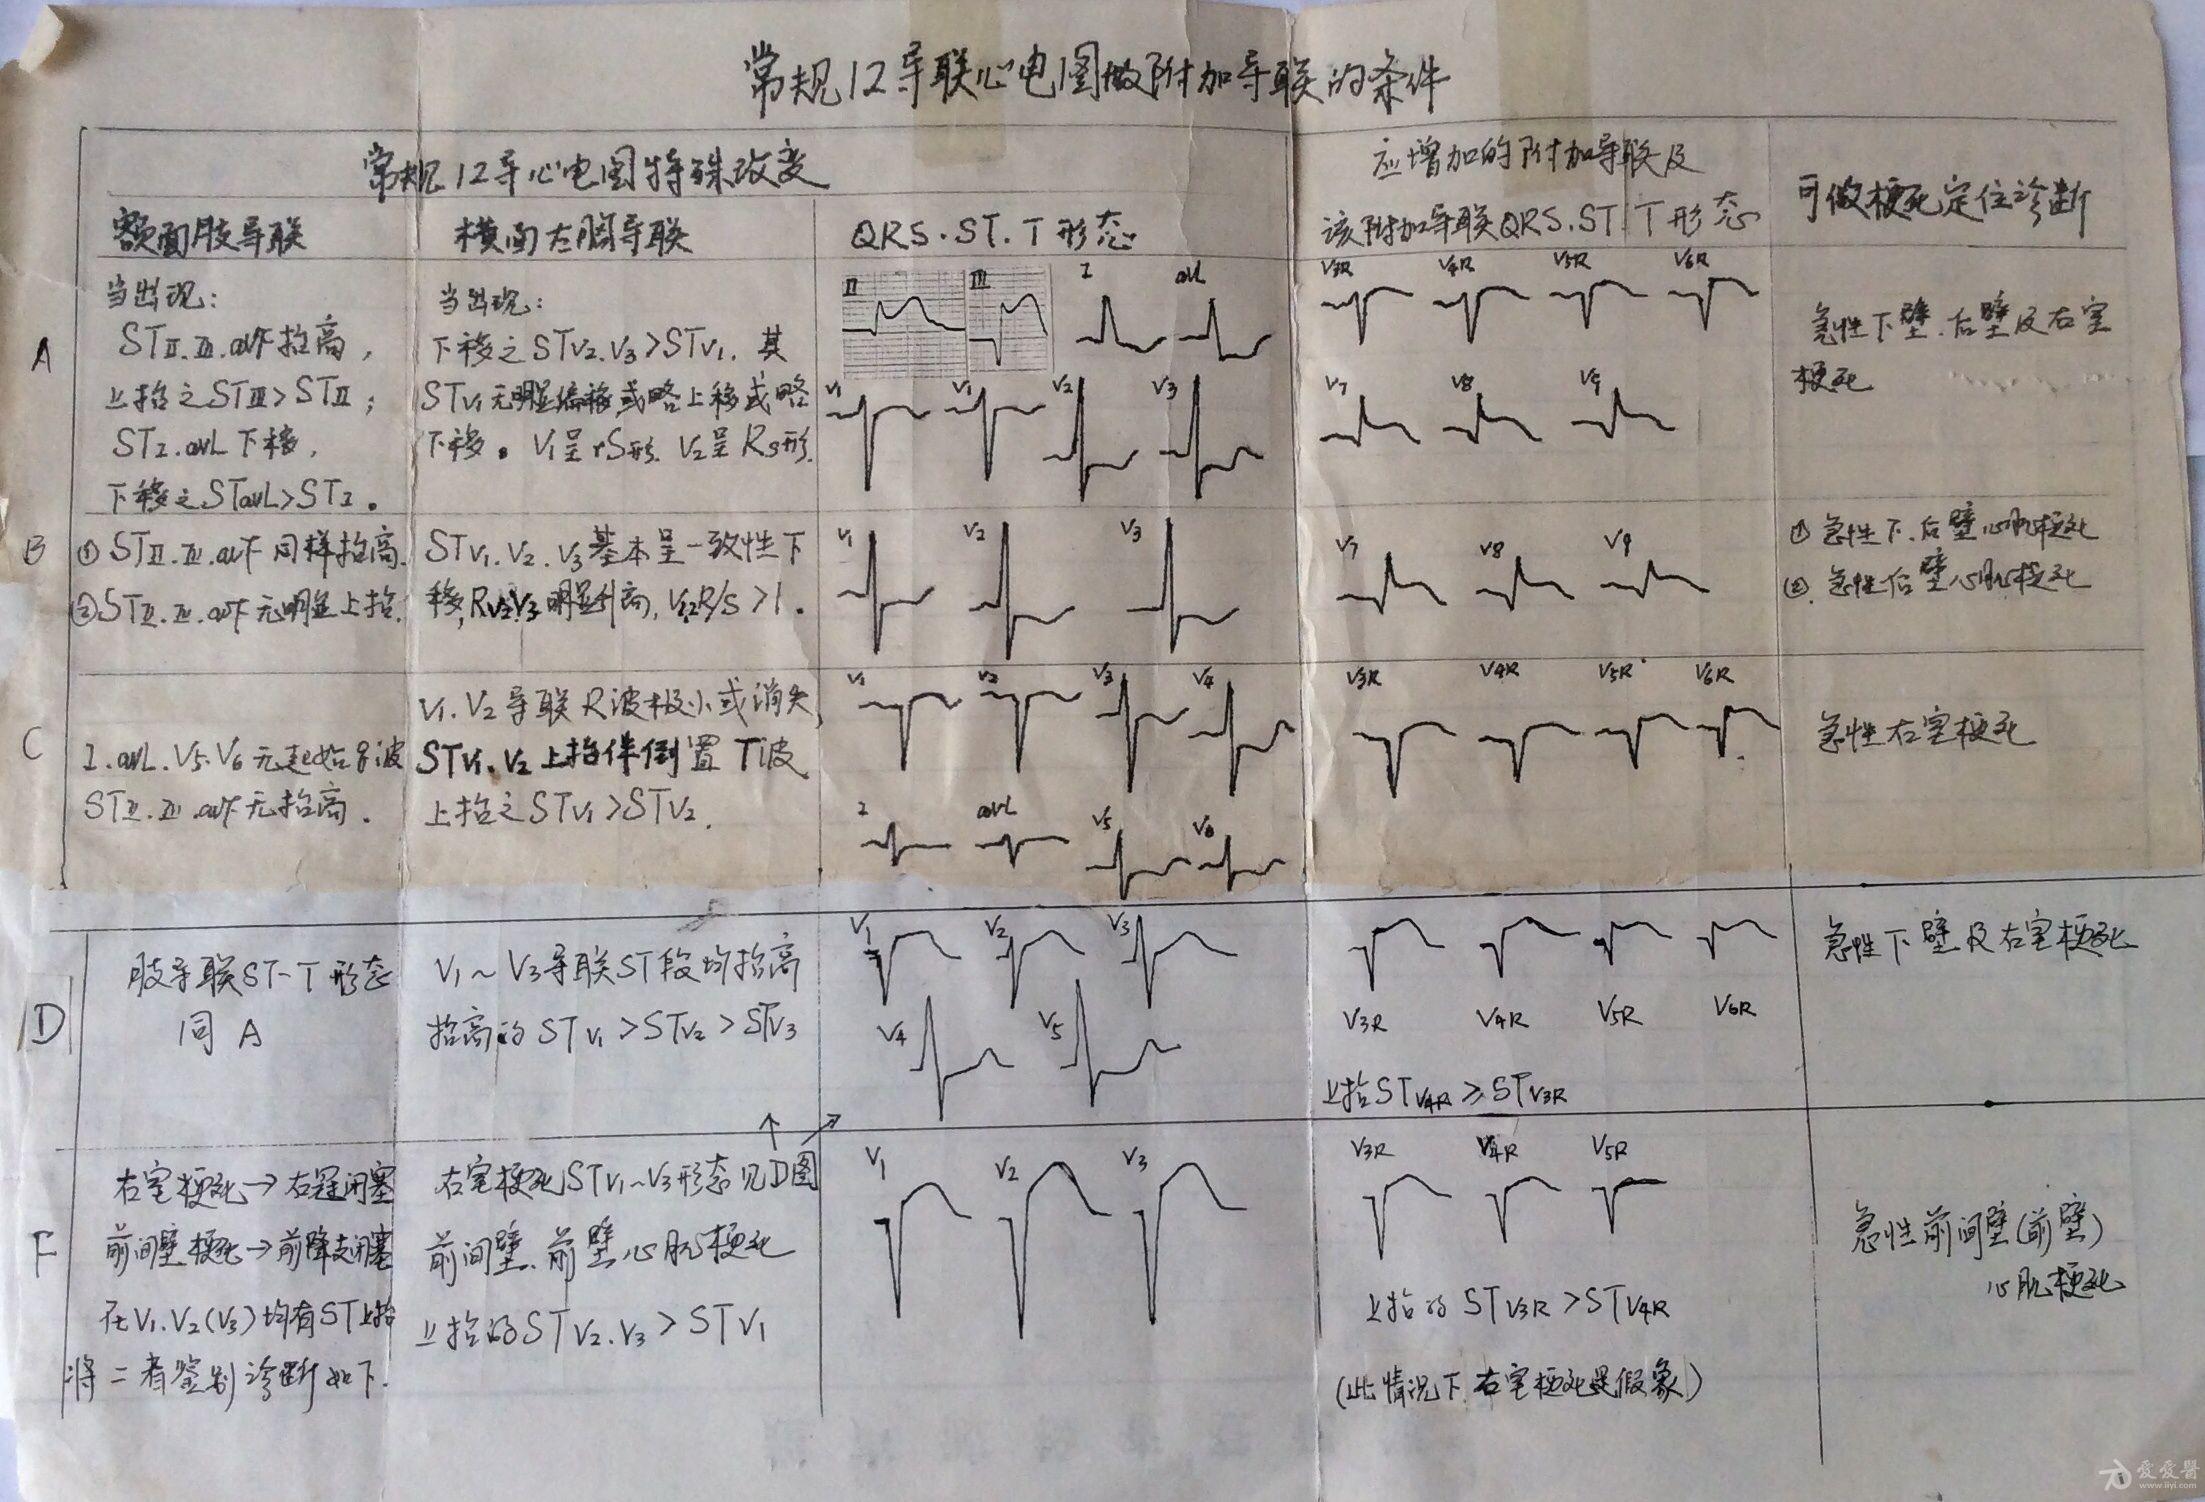 常规12导联心电图做附加导联的条件
常规12导心电图特殊改变
应增加的附加导联及
该附加导联QRS.ST.T形态
可做梗死定位诊断
额面肢导联
横面左胸导联
QRS.ST.T形态
A
当出现:
STⅡ.Ⅲ.avF抬高,
上抬之STⅢ>STⅡ;
STI.avL下移,
下移之STavL>STI。
当出现:
下移之STV2.V3>STV1.其
STV1无明显偏移或略上移或略
下移。V1呈rS形.V2呈Rs形.
Ⅱ Ⅲ I avL
V1 V1 V2 V3
V3R V4R V5R V6R
V7 V8 V9
急性下壁.后壁及右室
梗死
B
①STⅡ.Ⅲ.avF同样抬高.
②STⅡ.Ⅲ.avF无明显上抬.
STV1.V2.V3基本呈一致性下
移,RV2.V3明显升高,V1,2R/S>1。
V1 V2 V3
V7 V8 V9
①急性下.后壁心肌梗死
②.急性后壁心肌梗死
C
I.avL.V5.V6无起始q波
STⅡ.Ⅲ.avF无抬高.
V1.V2导联R波极小或消失,
STV1.V2上抬伴倒置T波
上抬之STV1>STV2.
V1 V2 V3 V4
I avL V5 V6
V3R V4R V5R V6R
急性右室梗死
D
肢导联ST-T形态
同A
V1~V3导联ST段均抬高
抬高的STV1>STV2>STV3
V1 V2 V3
V4 V5
V3R V4R V5R V6R
上抬STV4R≥STV3R
急性下壁及右室梗死
F
右室梗死→右冠闭塞
前间壁梗死→前降支闭塞
在V1.V2(V3)均有ST上抬
将二者鉴别诊断如下.
右室梗死STV1~V3形态见D图
前间壁.前壁心肌梗死
上抬的STV2.V3>STV1
V1 V2 V3
V3R V4R V5R
上抬的STV3R>STV4R
(此情况下.右室梗死是假象)
急性前间壁(前壁)
心肌梗死
爱爱醫
www.iiyi.com